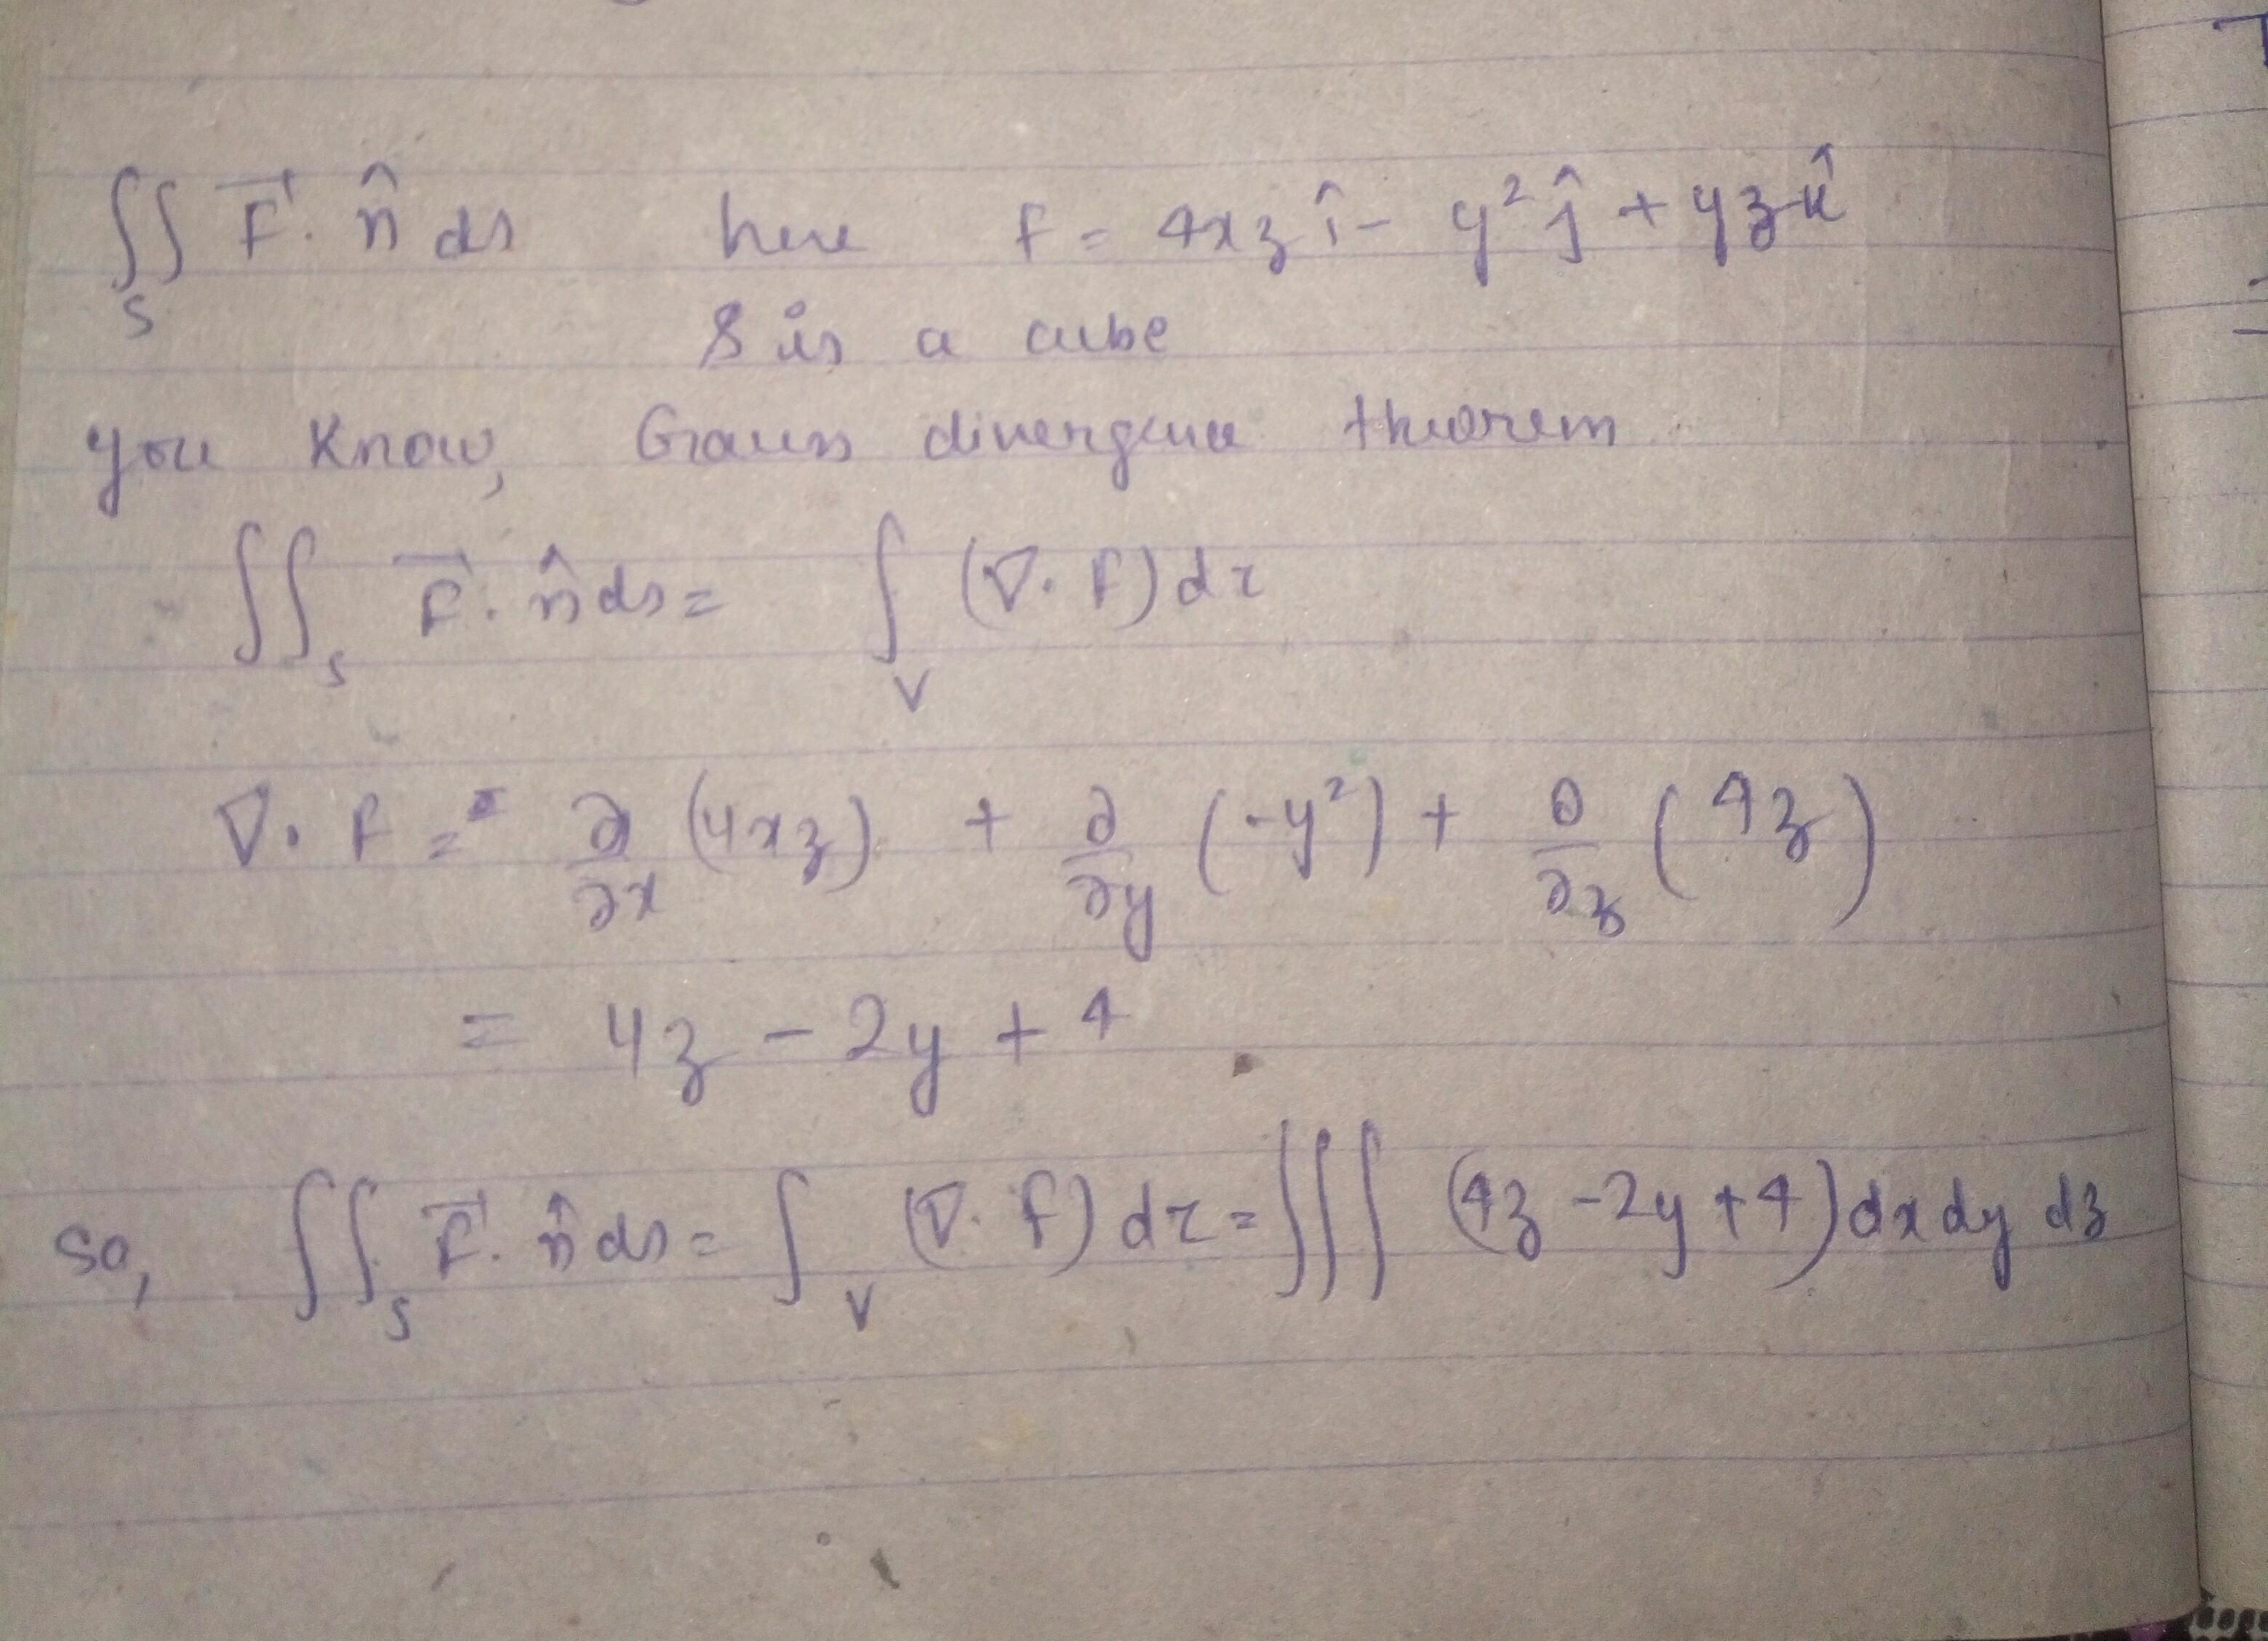 ∬_S F⃗ · n̂ ds here F = 4xz î - y² ĵ + yz k̂
S is a cube
you know, Gauss divergence theorem
∬_S F⃗ · n̂ ds = ∫_V (∇ · F) dτ
∇ · F = = ∂/∂x (4xz) + ∂/∂y (-y²) + ∂/∂z (4z)
= 4z - 2y + 4
so, ∬_S F⃗ · n̂ ds = ∫_V (∇ · F) dτ = ∭ (4z - 2y + 4) dx dy dz